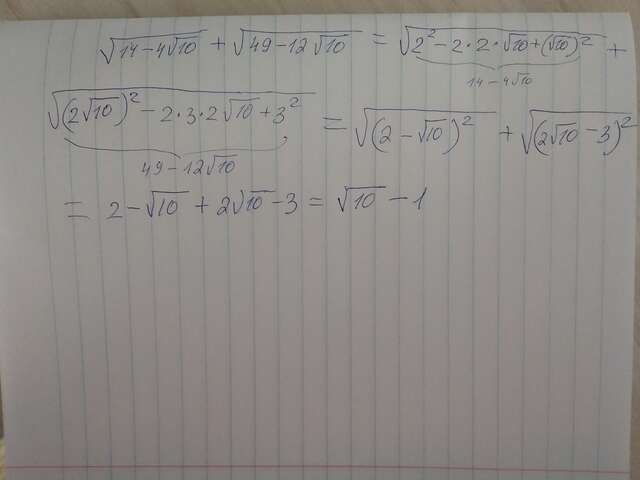 √(14-4√10) + √(49-12√10) = √(2² - 2·2·√10 + (√10)²) +
14-4√10
√((2√10)² - 2·3·2√10 + 3²) = √((2-√10)²) + √((2√10-3)²)
49-12√10
= 2-√10 + 2√10-3 = √10 -1